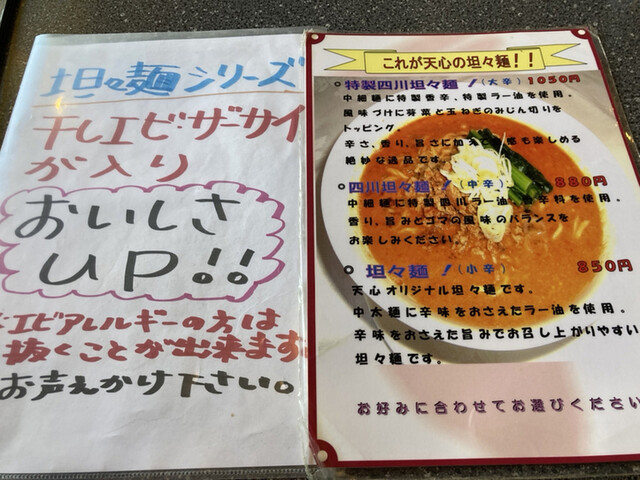 坦々麺シリーズ
干しエビ・ザーサイ
が入り
おいしさ
UP!!
エビアレルギーの方は
抜くことが出来ます。
お声えかけ下さい。
これが天心の坦々麺!!
特製四川坦々麺!(大辛) 1050円
中細麺に特製香辛、特製ラー油を使用。
風味づけに芽菜と玉ねぎのみじん切りを
トッピング。
辛さ、香り、旨さに加え 感も楽しめる
絶妙な逸品です。
四川坦々麺!(中辛) 880円
中細麺に特製四川ラー油、 辛料を使用。
香り、旨みとゴマの風味のバランスを
お楽しみください。
坦々麺!(小辛) 850円
天心オリジナル坦々麺です。
中太麺に辛味をおさえたラー油を使用。
辛味をおさえた旨みでお召し上がりやすい
坦々麺です。
お好みに合わせてお選びください